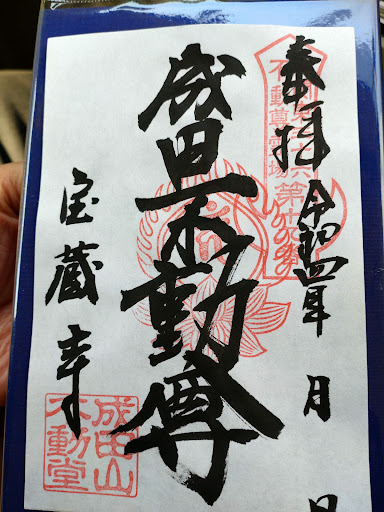 奉拝
令和四年 月 日
成田不動尊
宝蔵寺
不動尊霊場
第
成田山
不動堂